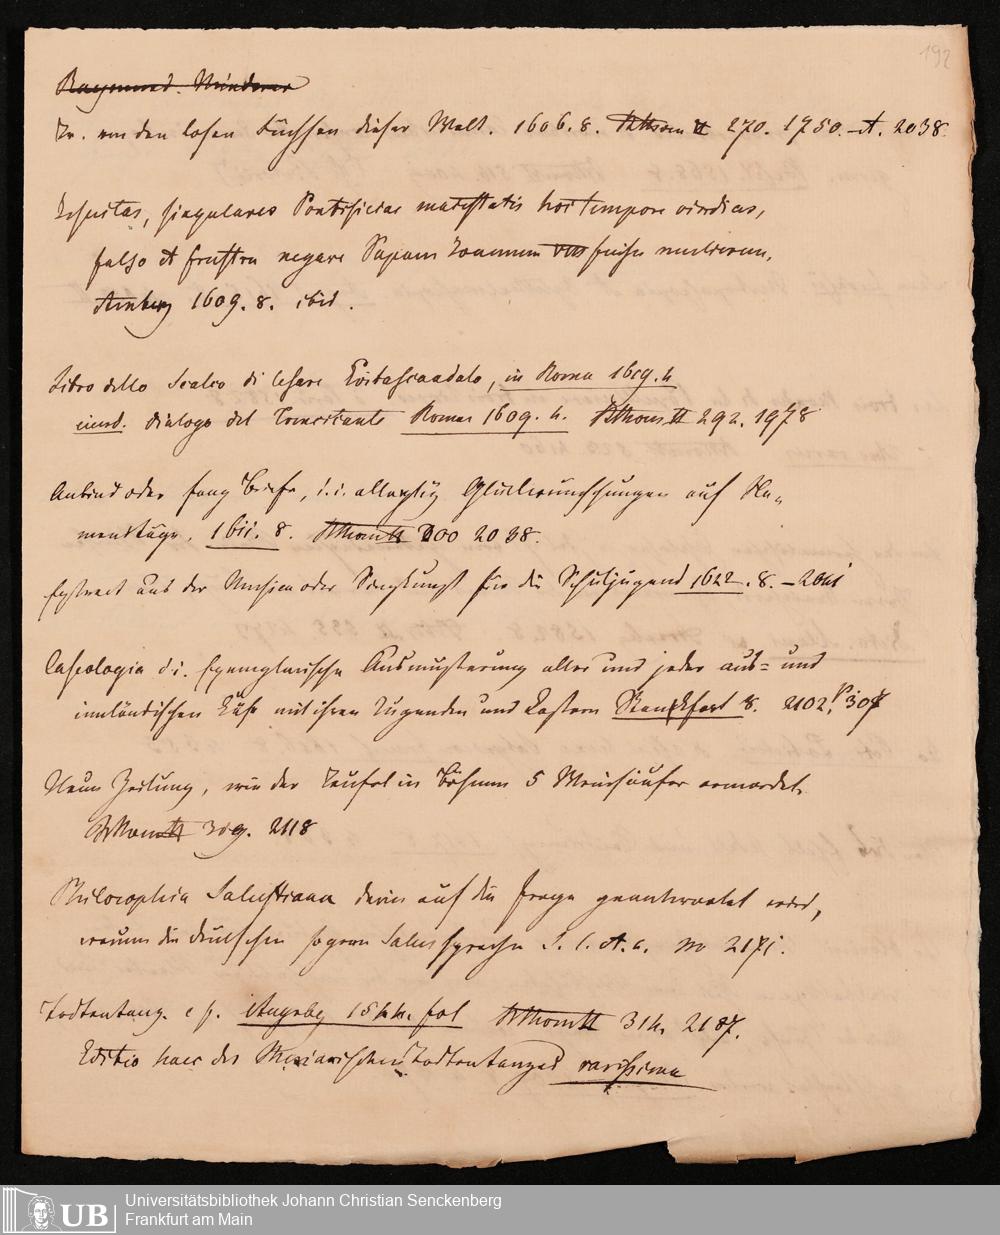 192
Raymund. Minderer
Tr. von den losen Füchsen dieser Welt. 1606. 8. 270. 1750. – A. 2038.
Jesuitas, singulares Pontificiae maiestatis hoc tempore vindices,
falso et frustra negare Papam Joannem VIII fuisse mulierem.
Amberg 1609. 8. ibid.
Libro dello Scalco di Cesare Evitascandalo, in Roma 1609. 4
eiusd. dialogo del Trenciante Romae 1609. 4. II 292. 1978
Anbind oder Fang Briefe, d. i. allerhtig Glückwünschungen auf Na„
menstäge. 1611. 8. 300 2038.
Extract aus der Musica oder Singkunst für die Schuljugend 1622. 8. –
Caseologia d. i. Exemplarische Ausmusterung aller und jeder aus= und
innländischen Käse mit ihren Tugenden und Lastern 8. 2102. 307
Neue Zeitung, wie der Teufel in Böhmen 5 Weinsäufer ermordet.
309. 2118
Philosophia Salustiana darin auf die Frage geantwortet wird,
warum die deutschen so gern Salus sprechen S. l. et. a. no 2171.
Todtentanz. c f. Augsbg 1544. fol 314. 2187.
Editio haec des Merianischen Todtentanzes rarissima
UB
Universitätsbibliothek Johann Christian Senckenberg
Frankfurt am Main